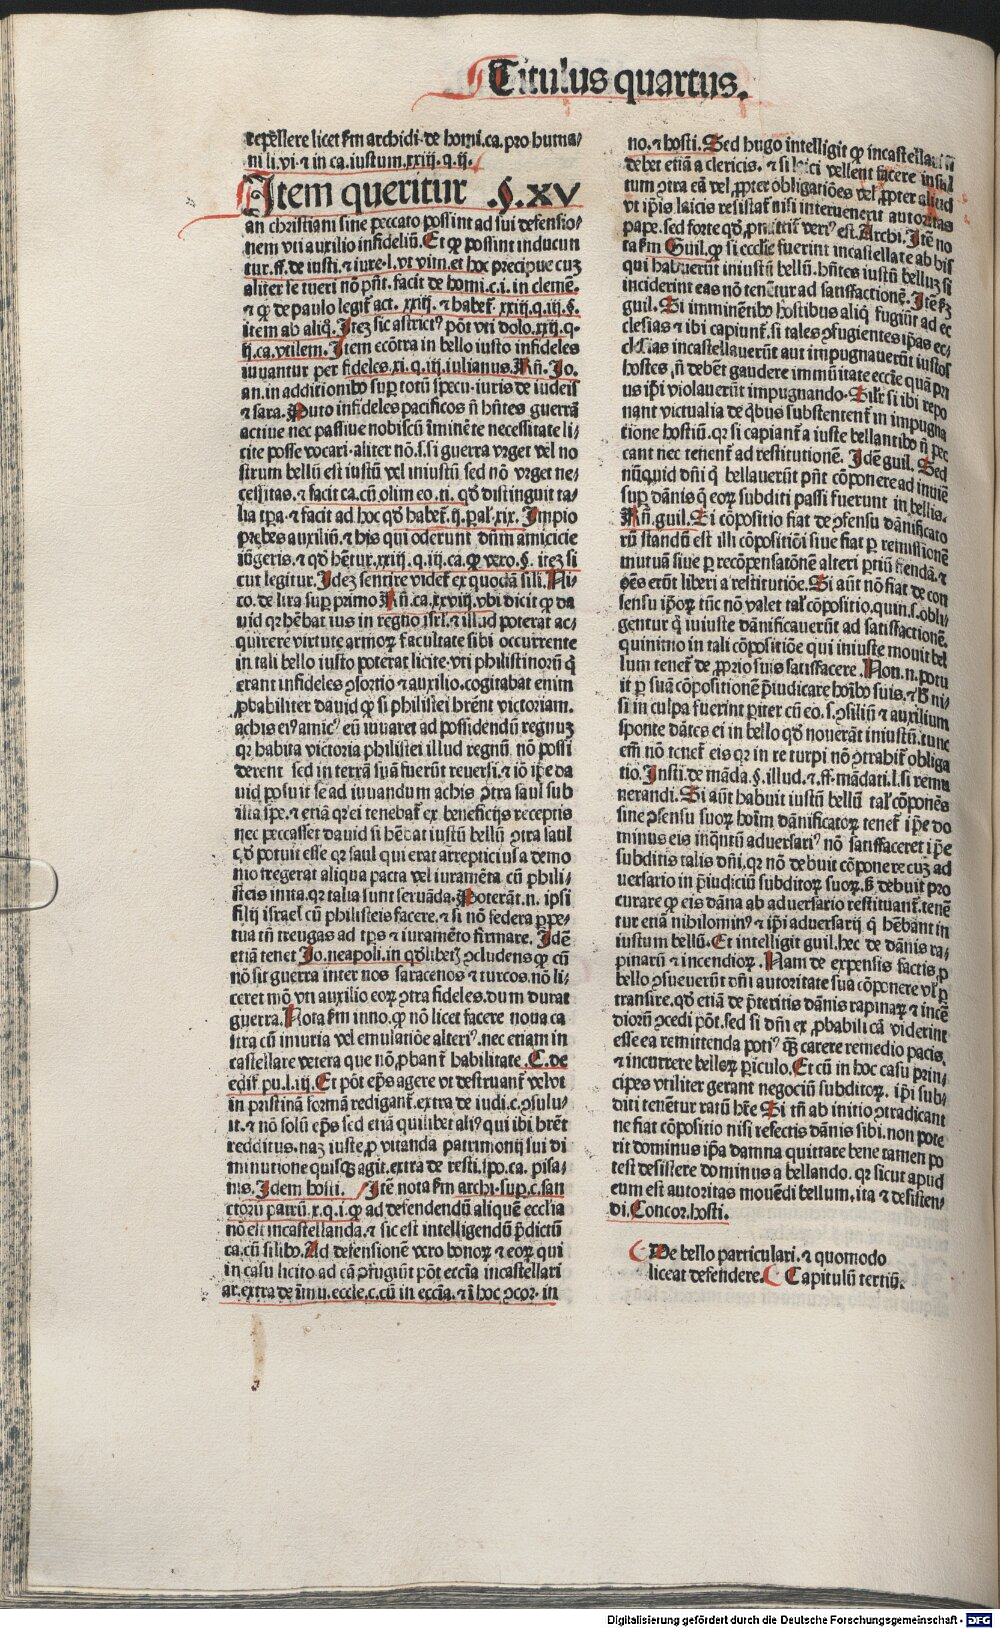 Titulus quartus.
repellere licet km archidi. de homi. ca. pro huma⸗
ni li. vi. ⁊ in ca. iustum. xxiij. q. ij.
Item queritur .§.XV
an christiani sine peccato possint ad sui defensio⸗
nem vti auxilio infideliū. Et ꝙ possint inducun
tur. ff. de iusti. ⁊ iure. l. vt vim. et hoc precipue cuʒ
aliter se tueri nō pn̄t. facit de homi. c. i. in clemē.
⁊ ꝙ de paulo legit̄ act. xxiij. ⁊ habet̄. xxiij. q. iij. §.
item ab aliq̄. Iteʒ sic astrictꝰ pōt vti dolo. xxij. q.
ij. ca. vtilem. Item ecōtra in bello iusto infideles
iuuantur per fideles. xi. q. iij. iulianus. Rn̄. Jo.
an. in additionibꝰ suꝑ totū specu. iuris de iudeis
⁊ sara. Puto infideles pacificos n̄ hn̄tes guerrā
actiue nec passiue nobiscū īminēte necessitate li⸗
cite posse vocari. aliter nō. s. si guerra vrget vel no
strum bellū est iustū vel iniustū sed nō vrget ne⸗
cessitas. ⁊ facit ca. cū olim eo. ti. qd̄ distinguit ta⸗
lia tꝑa. ⁊ facit ad hoc qd̄ habet̄. ij. ꝑal. xix. Impio
p̄bes auxiliū. ⁊ his qui oderunt dn̄m amicicie
iūgeris. ⁊ qd̄ hētur. xxiij. q. iij. ca. ꝙ vero. §. iteʒ si
cut legitur. Ideʒ sentire videt̄ ex quodā sili. Ni⸗
co. de lira suꝑ primo Rn̄. ca. xxviij. vbi dicit ꝙ da
uid qꝛ hēbat ius in regno isrl̄. ⁊ illud poterat ac⸗
quirere virtute armoꝝ facultate sibi occurrente
in tali bello iusto poterat licite vti philistinorū q̄
erant infideles ꝯsortio ⁊ auxilio. cogitabat enim
ꝓbabiliter dauid ꝙ si philistei hrēnt victoriam.
achis eiꝰ amicꝰ eū iuuaret ad possidendū regnuʒ
qꝛ habita victoria philistei illud regnū nō possi
derent sed in terrā suā fuerūt reuersi. ⁊ iō ip̄e da
uid posuit se ad iuuandum achis ꝯtra saul sub
illa spe. ⁊ etiā qꝛ ei tenebat̄ ex beneficijs receptis
nec peccasset dauid si hēbat iustū bellū ꝯtra saul
qd̄ potuit esse qꝛ saul qui erat arrepticius a demo
nio fregerat aliqua pacta vel iuramēta cū phili⸗
steis inita. qꝛ talia sunt seruāda. Poterāt. n. ipsi
filij israel cū philisteis facere. ⁊ si nō federa ꝑpe⸗
tua tn̄ treugas ad tp̄s ⁊ iuramēto firmare. Idē
etiā tenet Jo. neapoli. in qd̄libetʒ ꝯcludens ꝙ cū
nō sit guerra inter nos saracenos ⁊ turcos. nō li⸗
ceret mō vti auxilio eoꝝ ꝯtra fideles. dum durat
guerra. Nota km inno. ꝙ nō licet facere noua ca
stra cū iniuria vel emulatiōe alteriꝰ. nec etiam in
castellare vetera que nō ꝓbant̄ habilitate. C. de
edif. pu. l. iij. Et pōt ep̄s agere vt destruant̄ vel vt
in pristinā formā redigant̄. extra de iudi. c. ꝯsulu⸗
it. ⁊ nō solū ep̄s sed etiā quilibet aliꝰ qui ibi hrēt
redditus. naʒ iuste ꝓ vitanda patrimonij sui di
minutione quisqʒ agit. extra de resti. spo. ca. pisa⸗
nis. Idem hosti. Itē nota km archi. suꝑ. c. san
ctorū patrū. x. q. i. ꝙ ad defendendū aliquē ecclīa
nō est incastellanda. ⁊ sic est intelligendū p̄dictū
ca. cū silibꝰ. Ad defensionē vero bonoꝝ ⁊ eoꝝ qui
in casu licito ad eā ꝯfugiūt pōt eccīa incastellari
ar. extra de īmu. eccle. c. cū in eccīa. ⁊ ī hoc ꝯcor. in
no. ⁊ hosti. Sed hugo intelligit ꝙ incastellari
debet etiā a clericis. ⁊ si laici vellent facere insul
tum ꝯtra eā vel ꝓpter obligatiōes vel ꝓpter aliud
vt ip̄is laicis resistat̄ nisi interuenerit autoritas
pape. sed forte qd̄ p̄mittit̄ verꝰ est. Archi. Itē no
ta km Guil. ꝙ si eccl̄ie fuerint incastellate ab his
qui habuerūt iniustū bellū. hn̄tes iustū belluʒ si
inciderint eas nō tenētur ad satisfactionē. Itē km
guil. Si imminētibꝰ hostibus aliq̄ fugiūt ad ec
clesias ⁊ ibi capiunt̄. si tales ꝯfugientes ip̄as ec⸗
clesias incastellauerūt aut impugnauerūt iustos
hostes, n̄ debēt gaudere immūitate eccīe quā pri
us ip̄i violauerūt impugnando. Silr̄ si ibi repo
nant victualia de qbus substentent̄ in impugna
tione hostiū. qꝛ si capiant̄ a iuste bellantibꝰ n̄ pec
cant nec tenent̄ ad restitutionē. Idē guil. Sed
nūquid dn̄i q̄ bellauerūt pn̄t cōponere ad inuicē
suꝑ dānis q̄ eoꝝ subditi passi fuerunt in bellis.
Rn̄. guil. Si cōpositio fiat de ꝯsensu dānificato
rū standū est illi cōpositiōi siue fiat ꝑ remissionē
mutuā siue ꝑ recōpensatōnē alteri ꝑtiū fiendā. ⁊
oēs erūt liberi a restitutiōe. Si aūt nō fiat de con
sensu ip̄oꝝ tūc nō valet talꝭ cōpositio. quin. s. obli⸗
gentur q̄ iniuste dānificauerūt ad satisfactionē.
quinimo in tali cōpositiōe qui iniuste mouit bel
lum tenet̄ de ꝓprio suis satisfacere. Non. n. potu
it ꝑ suā cōpositionē p̄iudicare hoībꝰ suis. ⁊ h̄ ni⸗
si in culpa fuerint pariter cū eo. s. ꝯsiliū ⁊ auxilium
sponte dātes ei in bello qd̄ nouerāt iniustū. tunc
em̄ nō tenet̄ eis qꝛ in re turpi nō ꝯtrahit̄ obliga
tio. Insti. de māda. §. illud. ⁊. ff. mādati. l. si remu
nerandi. Si aūt habuit iustū bellū talꝭ cōponēs
sine ꝯsensu suoꝝ hoīm dānificatoꝝ tenet̄ ip̄e do
minus eis inqn̄tū aduersariꝰ nō satisfaceret ip̄e
subditis talis dn̄i. qꝛ nō debuit cōponere cuʒ ad
uersario in p̄iudiciū subditoꝝ suoꝝ. sꝫ debuit pro
curare ꝙ eis dāna ab aduersario restituant̄. tenē
tur etiā nihilominꝰ ⁊ ip̄i aduersarij q̄ hēbant in
iustum bellū. Et intelligit guil. hec de dānis ra⸗
pinarū ⁊ incendioꝝ. Nam de expensis factis ꝓ
bello ꝯsueuerūt dn̄i autoritate sua cōponere vl̄ ꝑ
transire. qd̄ etiā de p̄teritis dānis rapinaꝝ ⁊ incē
dioꝝ ꝯcedi pōt. sed si dn̄i ex ꝓbabili cā viderint
esse ea remittenda potiꝰ q̄ꝫ carere remedio pacis.
⁊ incurrere belloꝝ ꝑiculo. Et cū in hoc casu prin⸗
cipes vtiliter gerant negociū subditoꝝ. ip̄i sub⸗
diti tenētur ratū hr̄e Si tn̄ ab initio ꝯtradicant
ne fiat cōpositio nisi refectis dānis sibi. non pote
rit dominus ip̄a damna quittare bene tamen po
test desistere dominus a bellando. qꝛ sicut apud
eum est autoritas mouēdi bellum. ita ⁊ desisten⸗
di. Concor. hosti.
De bello particulari. ⁊ quomodo
liceat defendere. Capitulū tertiū.
Digitalisierung gefördert durch die Deutsche Forschungsgemeinschaft - DFG